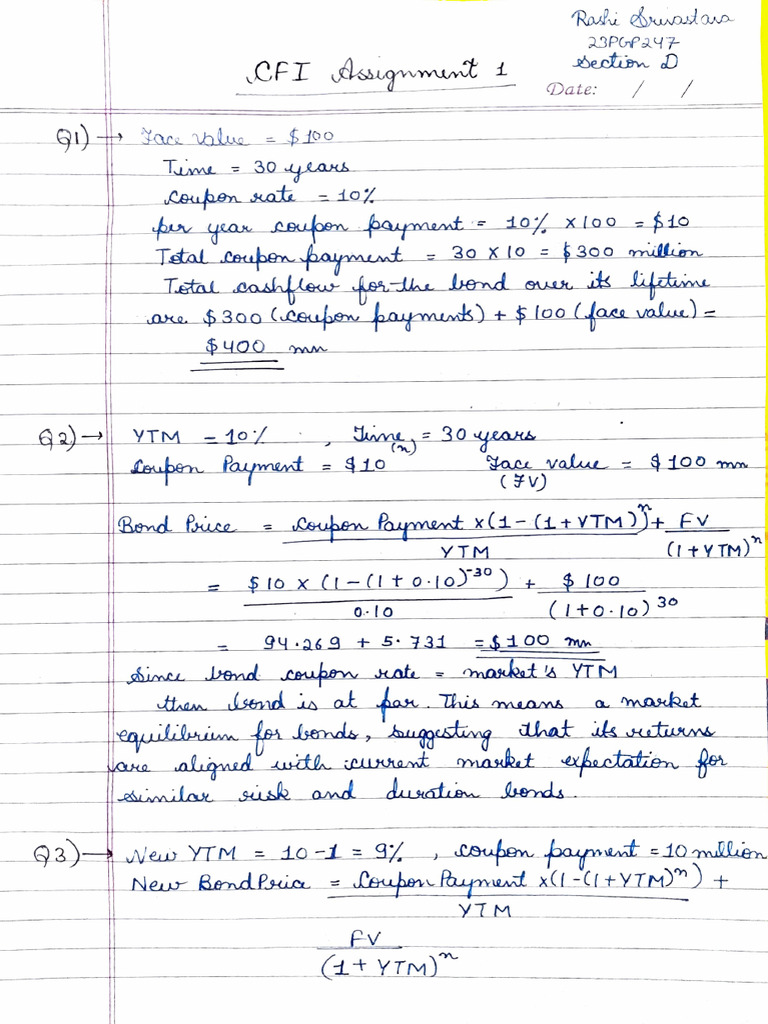 Rashi Srivastava
23PGP247
Section D
CFI Assignment 1
Date: / /
Q1) → Face Value = $100
Time = 30 years
Coupon rate = 10%
per year coupon payment = 10% x 100 = $10
Total coupon payment = 30 x 10 = $300 million
Total cashflow for the bond over its lifetime
are $300 (coupon payments) + $100 (face value) =
$400 mn
Q2) → YTM = 10% , Time (n) = 30 years
Coupon Payment = $10 Face value (FV) = $100 mn
Bond Price = Coupon Payment x (1-(1+YTM))^n / YTM + FV / (1+YTM)^n
= $10 x (1-(1+0.10)^-30) / 0.10 + $100 / (1+0.10)^30
= 94.269 + 5.731 = $100 mn
Since bond coupon rate = market's YTM
then bond is at par. This means a market
equilibrium for bonds, suggesting that its returns
are aligned with current market expectation for
similar risk and duration bonds.
Q3) → New YTM = 10-1 = 9% , coupon payment = 10 million
New Bond Price = Coupon Payment x (1-(1+YTM)^n) / YTM +
FV / (1+YTM)^n